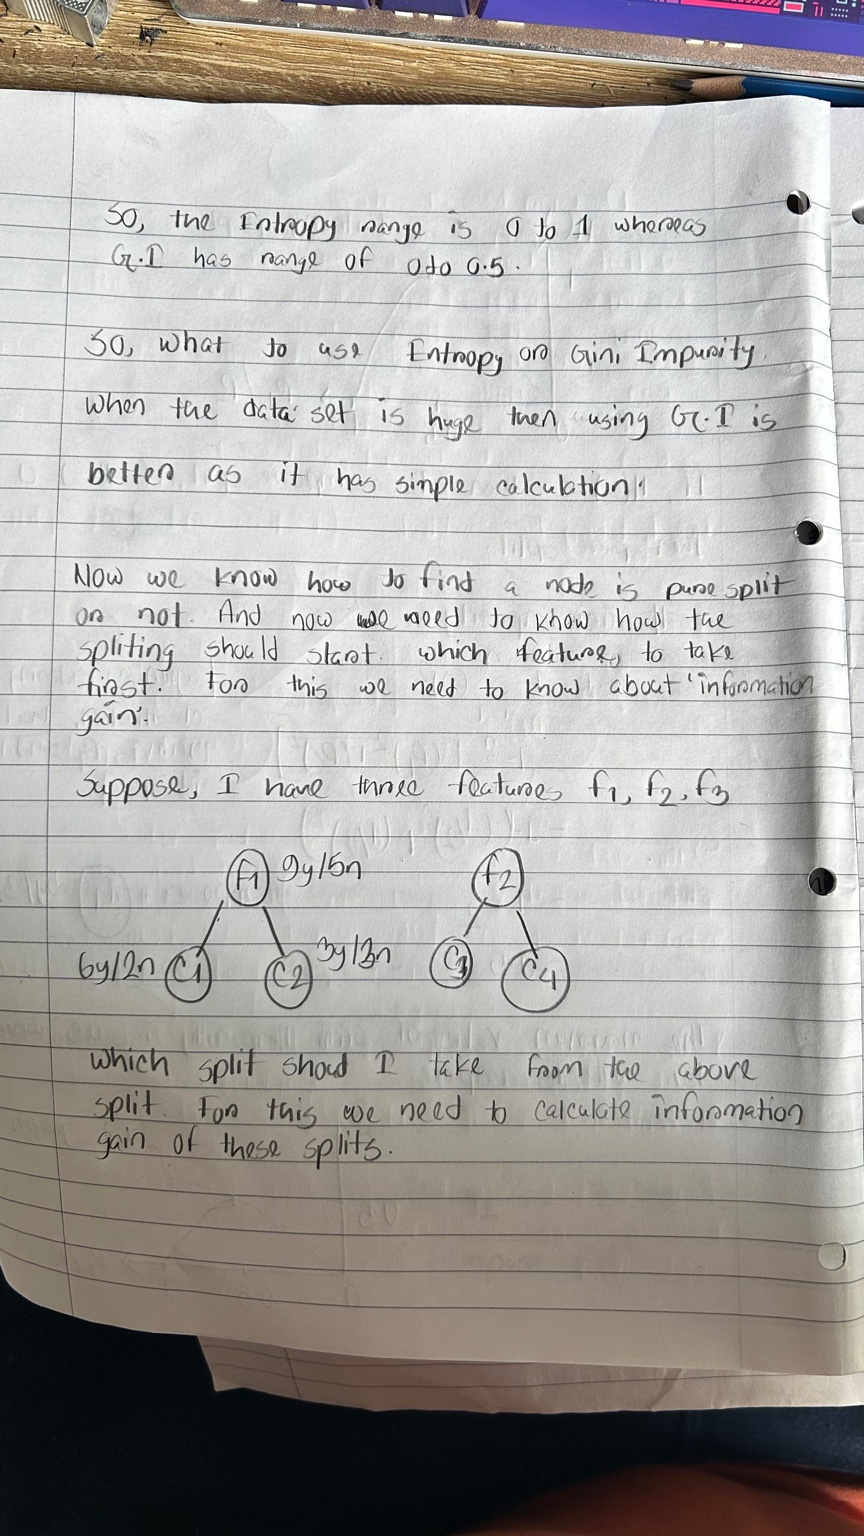 So, the Entropy range is 0 to 1 whereas
G.I has range of 0 to 0.5.
So, what to use Entropy or Gini Impurity.
When the data set is huge then using G.I is
better as it has simple calculation.
Now we know how to find a node is pure split
or not. And now we need to know how the
spliting should start. which feature, to take
first. For this we need to know about 'information
gain'.
Suppose, I have three features f1, f2, f3
f1 9y/5n
f2
6y/2n C1
C2 3y/3n
C3
C4
which split shoud I take from the above
split. For this we need to calculate information
gain of these splits.